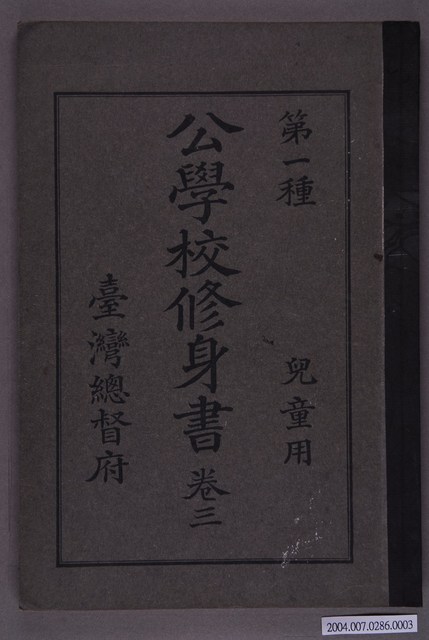 第一種 兒童用
公學校修身書 卷三
臺灣總督府
2004.007.0286.0003